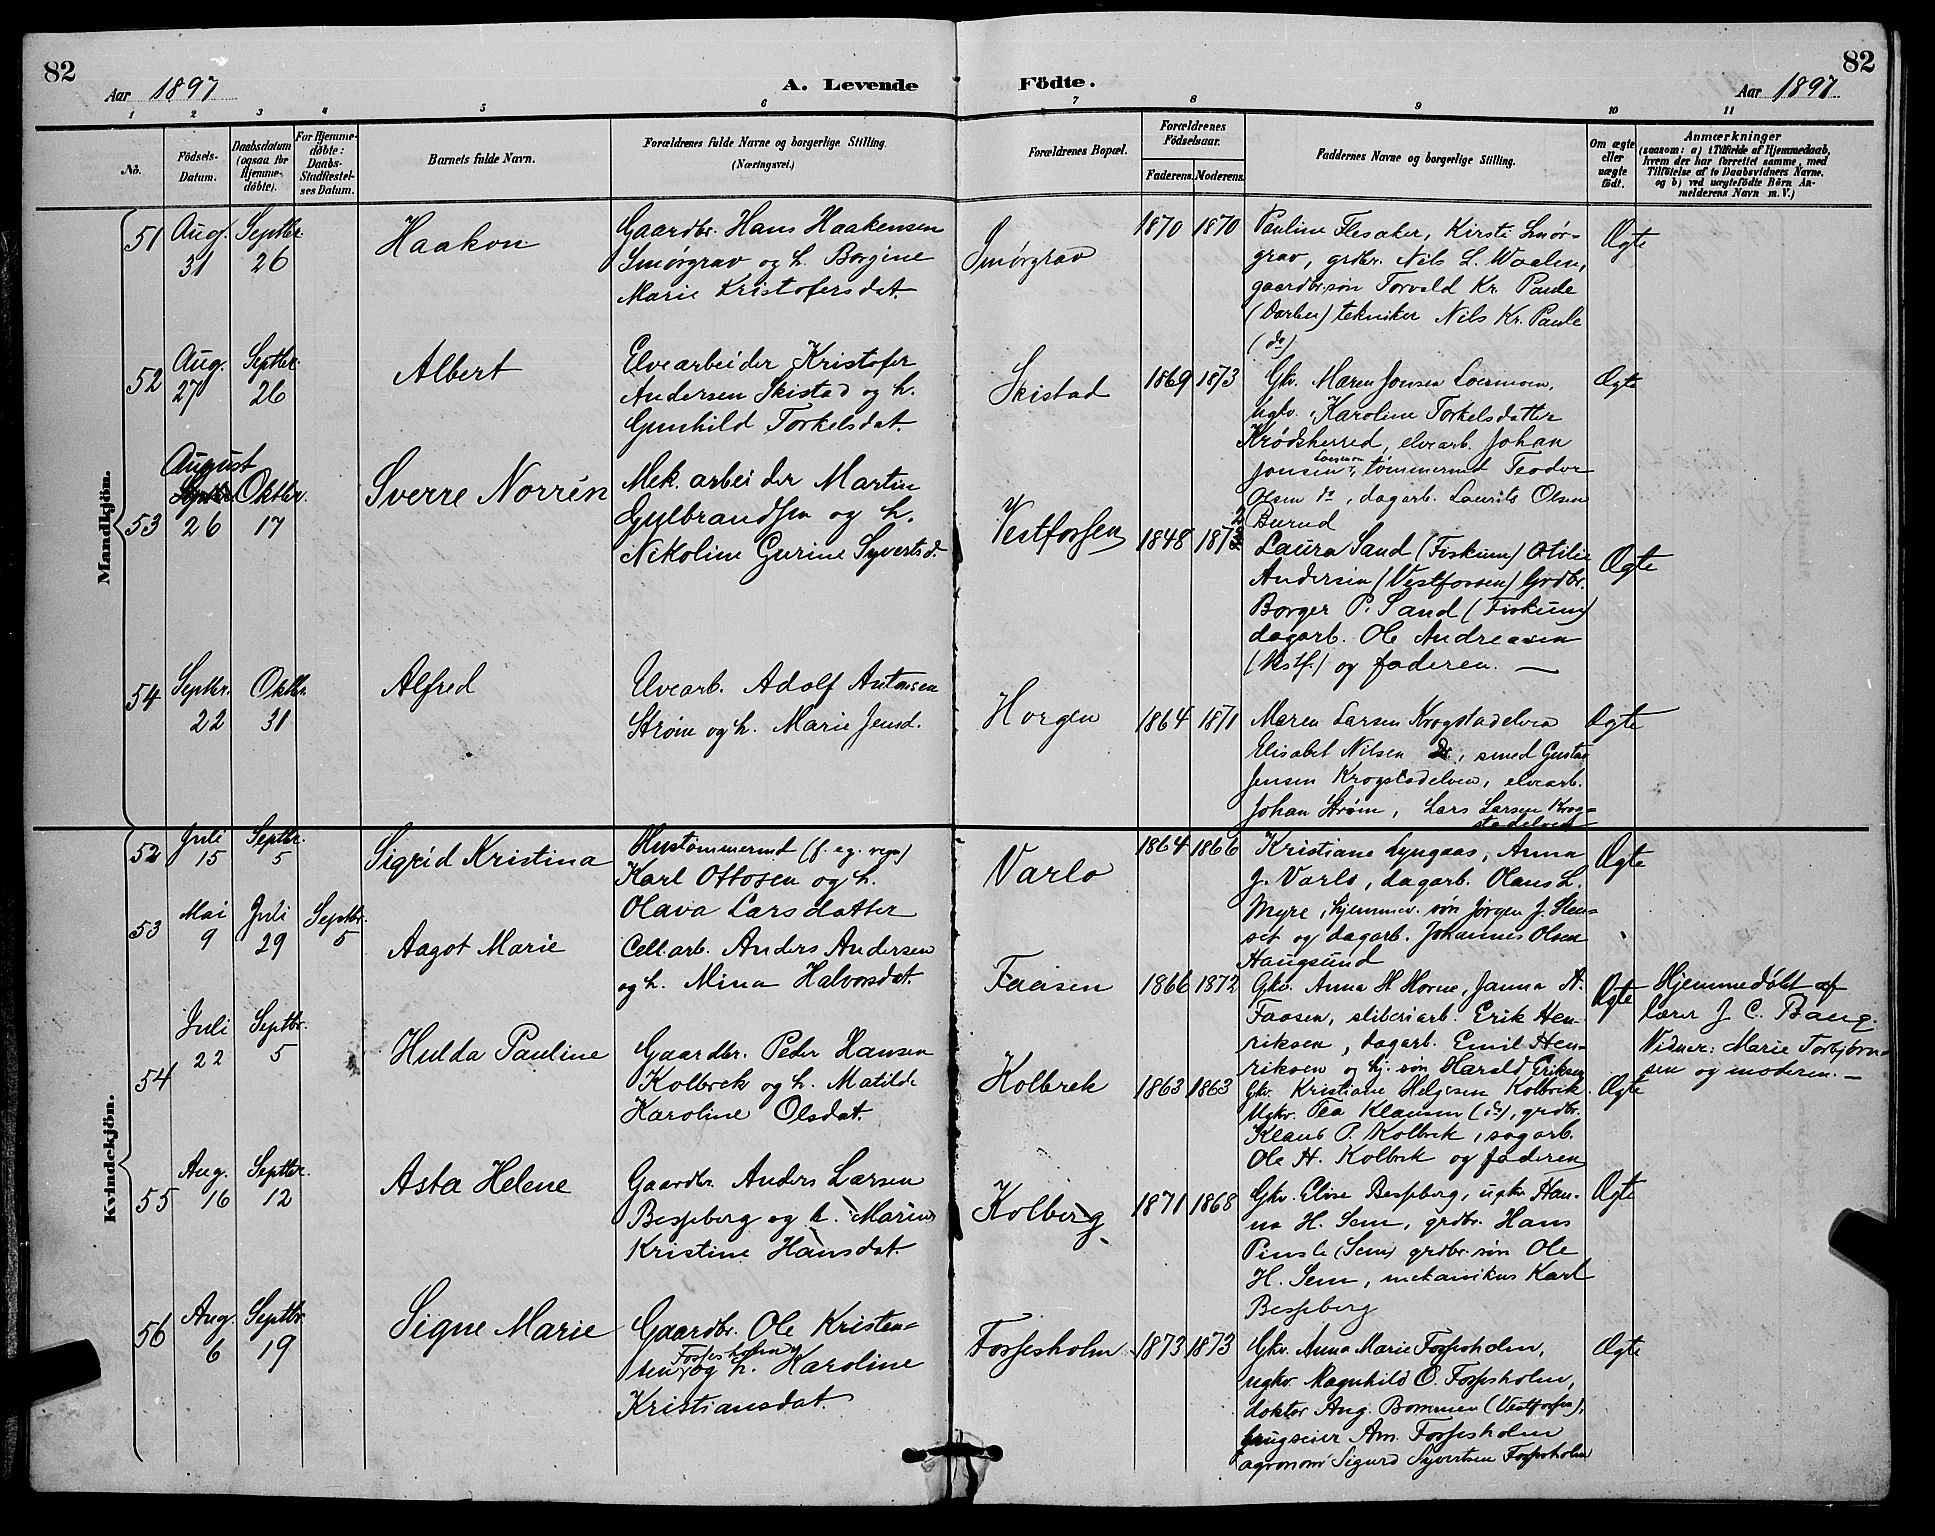 82
Aar 1897
A. Levende
Födte.
Aar 1897
82
1 2 3 4 5 6 7 8 9 10 11
No.
Födsels-
Datum.
Daabsdatum
(ogsaa for
Hjemme-
döbte).
For Hjemme-
döbte:
Daabs-
Stadfæstel-
ses Datum.
Barnets fulde Navn.
Forældrenes fulde Navne og borgerlige Stilling.
(Næringsvei.)
Forældrenes Bopæl.
Forældrenes
Födselsaar.
Faderens. Moderens.
Faddernes Navne og borgerlige Stilling.
Om ægte
eller
uægte
födt.
Anmærkninger
(saasom: a) i Tilfælde af Hjemmedaab,
hvem der har forrettet samme, med
Tilföielse af to Daabsvidners Navne,
og b) ved uægtefödte Börn An-
melderens Navn m. V.)
Mandkjön.
51
Aug.
31
Septbr.
26
Haakon
Gaardbr. Hans Haakensen
Smørgrav og h. Borgine
Marie Kristofersdat.
Smørgrav
1870 1870
Pauline Flesaker, Kirste Smør-
grav, grdbr. Nils L. Waalen,
gaardbr.søn Torvald Kr. Paule
(Darbu) tekniker Nils Kr. Paule
(do)
Ægte
52
Aug.
27
Septbr.
26
Albert
Elvearbeider Kristofer
Andersen Skistad og h.
Gunhild Torkelsdat.
Skistad
1869 1873
Gkv. Maren Jonsen Loesmoen,
Ugkv. Karoline Torkelsdatter
Krødsherred, elvearb. Johan
Jonsen Loesmoen, tømmermd Teodor
Olsen do, dagarb. Laurits Olsen
Burud
Ægte
53
August
26
Oktbr.
17
Sverre Norrén
Mek. arbeider Martin
Gulbrandsen og h.
Nikoline Gurine Syvertsd.
Vestfossen
1848 1872
Laura Sand (Fiskum) Otilie
Andersen (Vestfossen) Grdbr.
Borger P. Sand (Fiskum)
dagarb. Ole Andreasen
(Vestf.) og faderen. —
Ægte
54
Septbr.
22
Oktbr.
31
Alfred
Elvearb. Adolf Antonsen
Strøm og h. Marie Jensd.
Horgen
1864 1871
Maren Larsen Krogstadelven
Elisabet Nilsen do, smed Gustav
Jensen Krogstadelven, elvearb.
Johan Strøm, Lars Larsen Krog-
stadelven
Ægte
Kvindekjön.
52
Juli
15
Septbr.
5
Sigrid Kristina
Hustømmermd (f. eg. regn)
Karl Ottosen og h.
Olava Larsdatter
Varlo
1864 1866
Kristiane Lyngaas, Anna
J. Varlo, dagarb. Olaus L.
Myre, hjemmev. søn Jørgen J. Sten-
set og dagarb. Johannes Olsen
Haugsund
Ægte
53
Mai
9
Juli
29
Septbr.
5
Aagot Marie
Cell.arb. Anders Andersen
og h. Mina Halvorsdat.
Faasen
1866 1872
Gkv. Anna H Horne, Janna A.
Faasen, sliberiarb. Erik Hen-
riksen, dagarb. Emil Hen-
riksen og hj. søn Harald Eriksen
Ægte
Hjemmedøbt af
lærer J. C. Bang.
Vidner: Marie Torbjørn-
sen og moderen. —
54
Juli
22
Septbr.
5
Hulda Pauline
Gaardbr. Peder Hansen
Kolbrek og h. Matilde
Karoline Olsdat.
Kolbrek
1863 1863
Gkv. Kristiane Helgesen Kolbrek.
Ugkv. Tea Klausen (do), grdbr.
Klaus P. Kolbrek, sagarb.
Ole H. Kolbrek og faderen
Ægte
55
Aug.
16
Septbr.
12
Asta Helene
Gaardbr. Anders Larsen
Besseberg og h. Maren
Kristine Hansdat.
Kolberg
1871 1868
Gkv. Elise Besseberg, ugkv. Han-
na H. Sem, grdbr. Hans
Pinsle (Sem) grdbr.søn Ole
H. Sem, mekanikus Karl
Besseberg
Ægte
56
Aug.
6
Septbr.
19
Signe Marie
Gaardbr. Ole Kristen-
sen Fossesholm og h. Karoline
Kristiansdat.
Fossesholm
1873 1873
Gkv. Anna Marie Fossesholm,
ugkv. Magnhild O. Fossesholm,
doktor Aug. Bommen (Vestfossen),
brugseier Am. Fossesholm
agronom Sigurd Syvertsen Fossesholm
Ægte